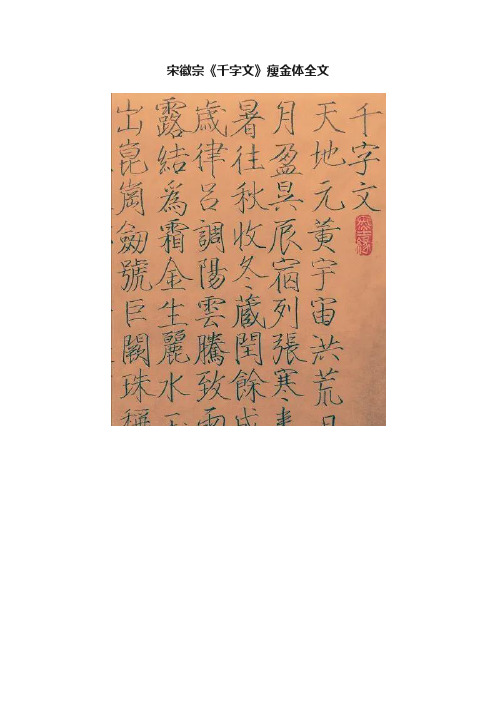 宋徽宗《千字文》瘦金体全文
千字文
天地元黃宇宙洪荒日
月盈昃辰宿列張寒来
暑往秋收冬藏閏餘成
歲律呂調陽雲騰致雨
露結爲霜金生麗水玉
出崑崗劒號巨闕珠稱